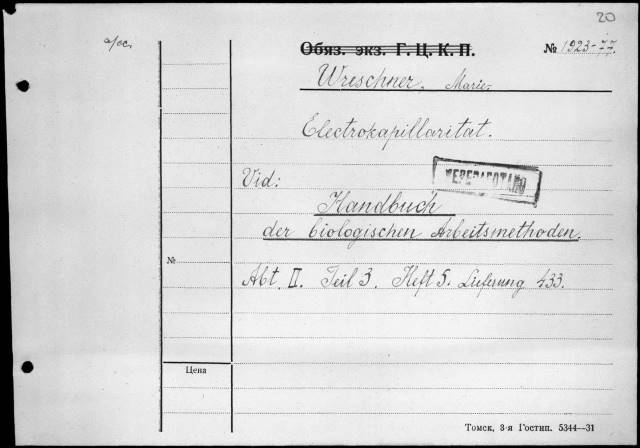 20
Обяз. экз. Г. Ц. К. П.
№ 1923-77.
Wreschner, Marie.
Electrokapillarität.
Vid:
ПЕРЕРАБОТАНО
Handbuch
der biologischen Arbeitsmethoden.
№
Abt. II. Teil 3. Heft 5. Lieferung 433.
Цена
Томск, 3-я Гостип. 5344—31